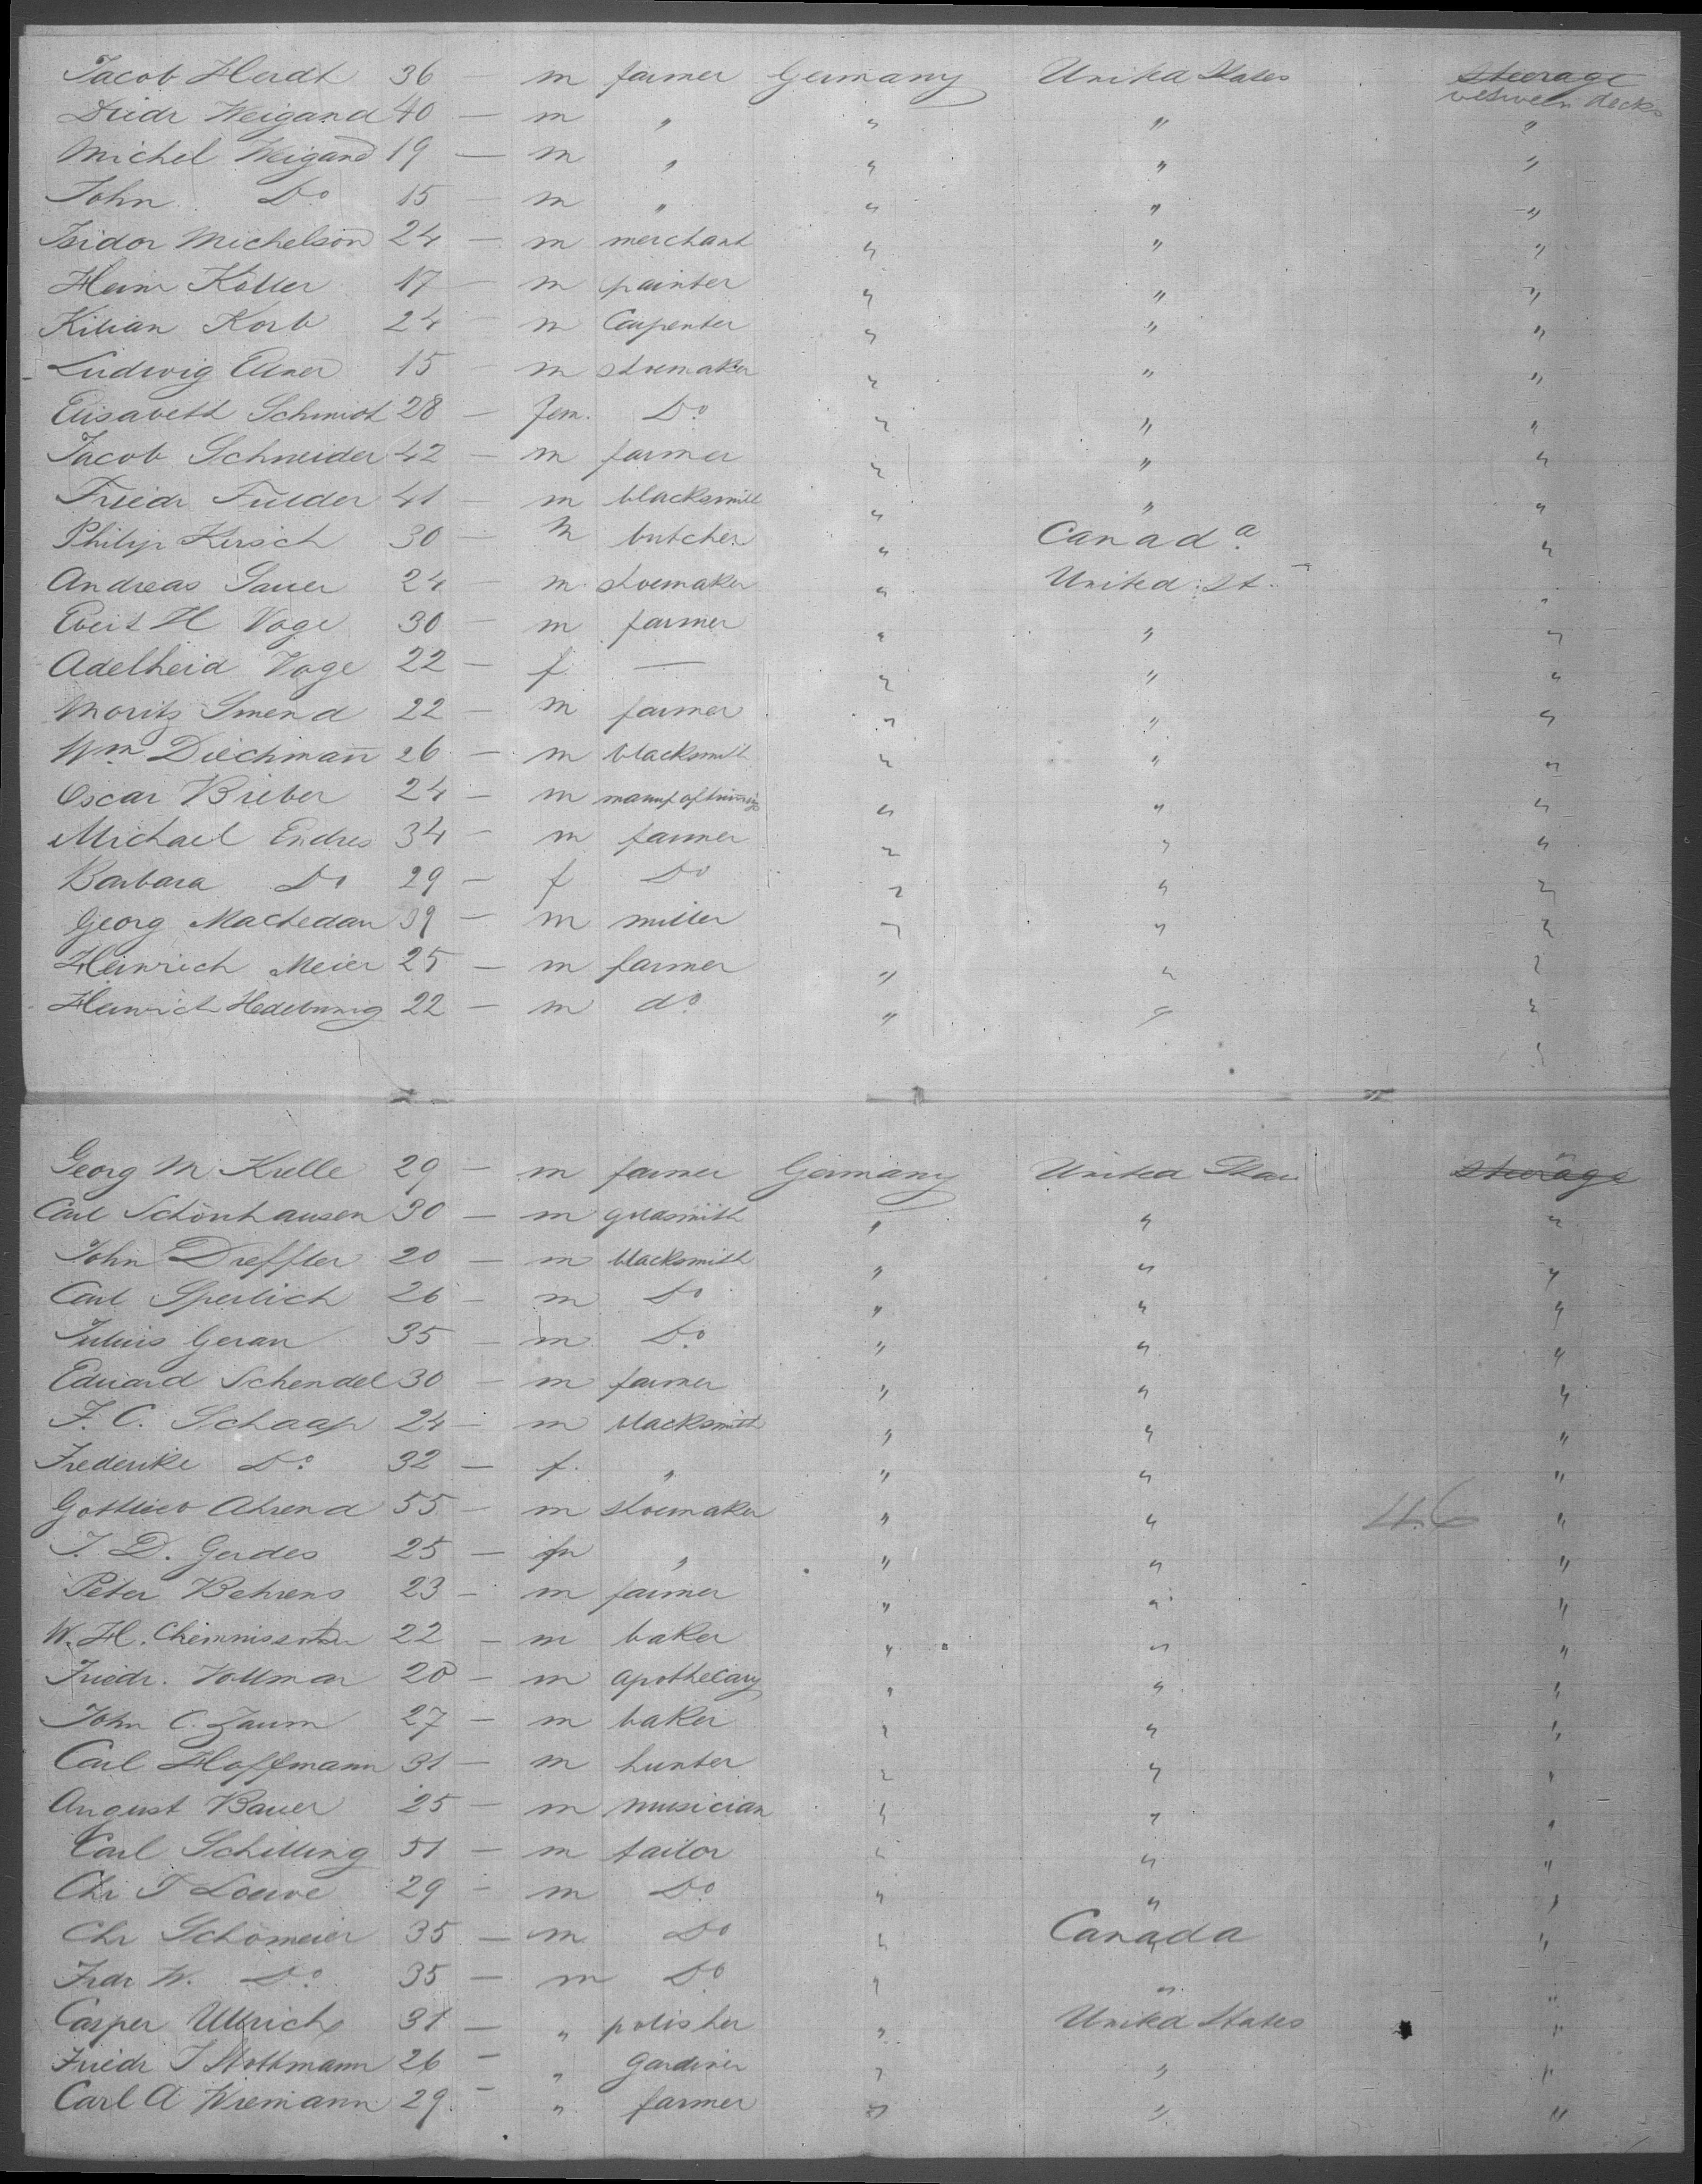 Jacob Herdt 36 — m farmer Germany United States steerage
between decks
Fridr Weigand 40 — m " " " "
Michel Weigand 19 — m " " " "
John Do 15 — m " " " "
Isidor Michelson 24 — m merchant " " "
Heinr Koller 17 — m painter " " "
Kilian Korb 24 — m Carpenter " " "
Ludwig 15 — m shoemaker " " "
Elisabeth Schmidt 28 — fem. Do " " "
Jacob Schneider 42 — m farmer " " "
Friedr Fulder 41 — m blacksmith " " "
Philip Kirsch 30 — m butcher " Canada "
Andreas Sauer 24 — m shoemaker " United St. "
Evert H Voge 30 — m farmer " " "
Adelheid Voge 22 — f — " " "
Moritz Smend 22 — m farmer " " "
Wm Diechmann 26 — m blacksmith " " "
Oscar Brieber 24 — m manuf of " " "
Michael Endres 34 — m farmer " " "
Barbara Do 29 — f Do " " "
Georg Machedan 39 — m miller " " "
Heinrich Meier 25 — m farmer " " "
Heinrich 22 — m do " " "
Georg M Krelle 29 — m farmer Germany United States steerage
Carl Schönhausen 30 — m goldsmith " " "
John Dreffler 20 — m blacksmith " " "
Carl Sperlich 26 — m Do " " "
Julius Geran 35 — m Do " " "
Eduard Schendel 30 — m farmer " " "
F. C. Schaap 24 — m blacksmith " " "
Frederike Do 32 — f. " " " "
Gottlieb Ahrend 55 — m shoemaker " " 46 "
J. D. Gerdes 25 — m " " " "
Peter Behrens 23 — m farmer " " "
W. H. 22 — m baker " " "
Friedr. Vollmar 20 — m apothecary " " "
John C. Zaum 27 — m baker " " "
Carl Hoffmann 31 — m hunter " " "
August Bauer 25 — m musician " " "
Carl Schilling 51 — m tailor " " "
Chr F Loewe 29 — m Do " " "
Chr Schömeier 35 — m Do " Canada "
Fredr W. Do 35 — m Do " " "
Casper Ullrich 31 — " polisher " United States "
Friedr J 26 — " Gardiner " " "
Carl A Wiemann 29. — " farmer " " "